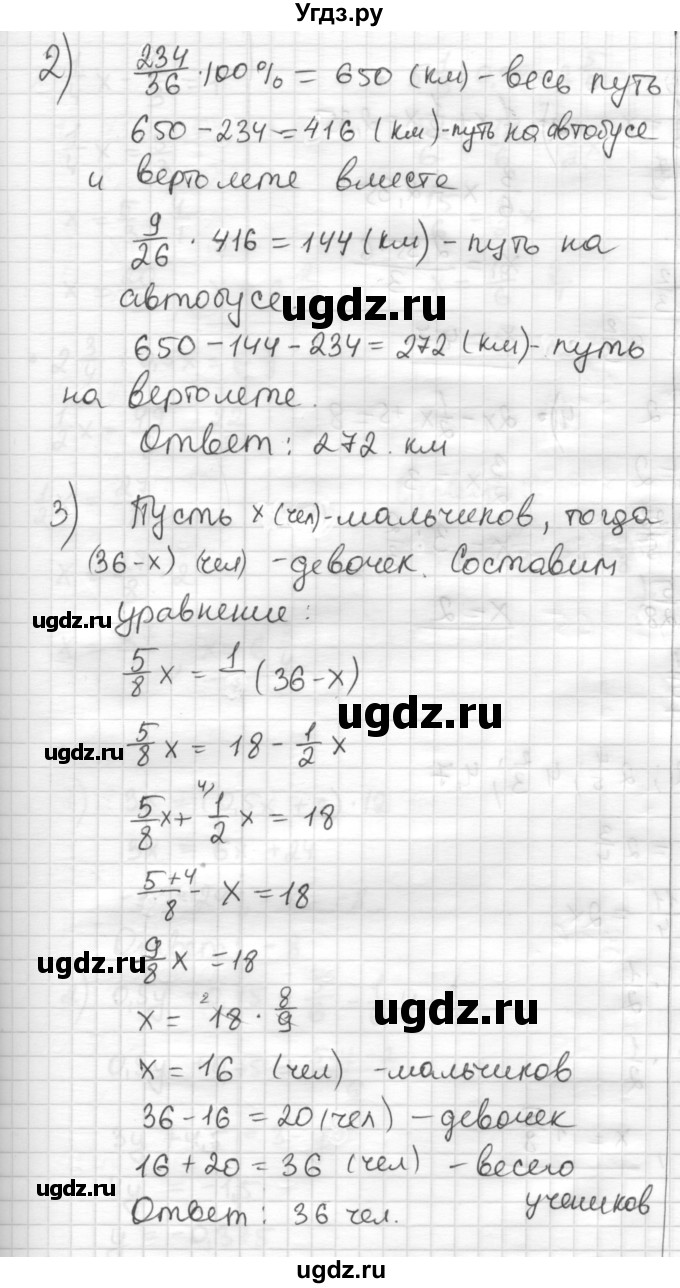 Угдз.ру
2) 234/36 · 100% = 650 (км) - весь путь
650 - 234 = 416 (км) - путь на автобусе
и вертолете вместе
9/26 · 416 = 144 (км) - путь на
автобусе.
ugdz.ru
650 - 144 - 234 = 272 (км) - путь
на вертолете.
Ответ: 272 км
3) Пусть x (чел) - мальчиков, тогда
(36-x) (чел) - девочек. Составим
ugdz.ru
уравнение:
5/8 x = 1/ (36-x)
ugdz.ru
ugdz.ru
5/8 x = 18 - 1/2 x
5/8 x + 4) 1/2 x = 18
5+4/8 x = 18
ugdz.ru
9/8 x = 18
x = 2 18 · 8/9
ugdz.ru
x = 16 (чел) - мальчиков
36 - 16 = 20 (чел) - девочек
16 + 20 = 36 (чел) - весего
ugdz.ru
учеников
Ответ: 36 чел.
ugdz.ru